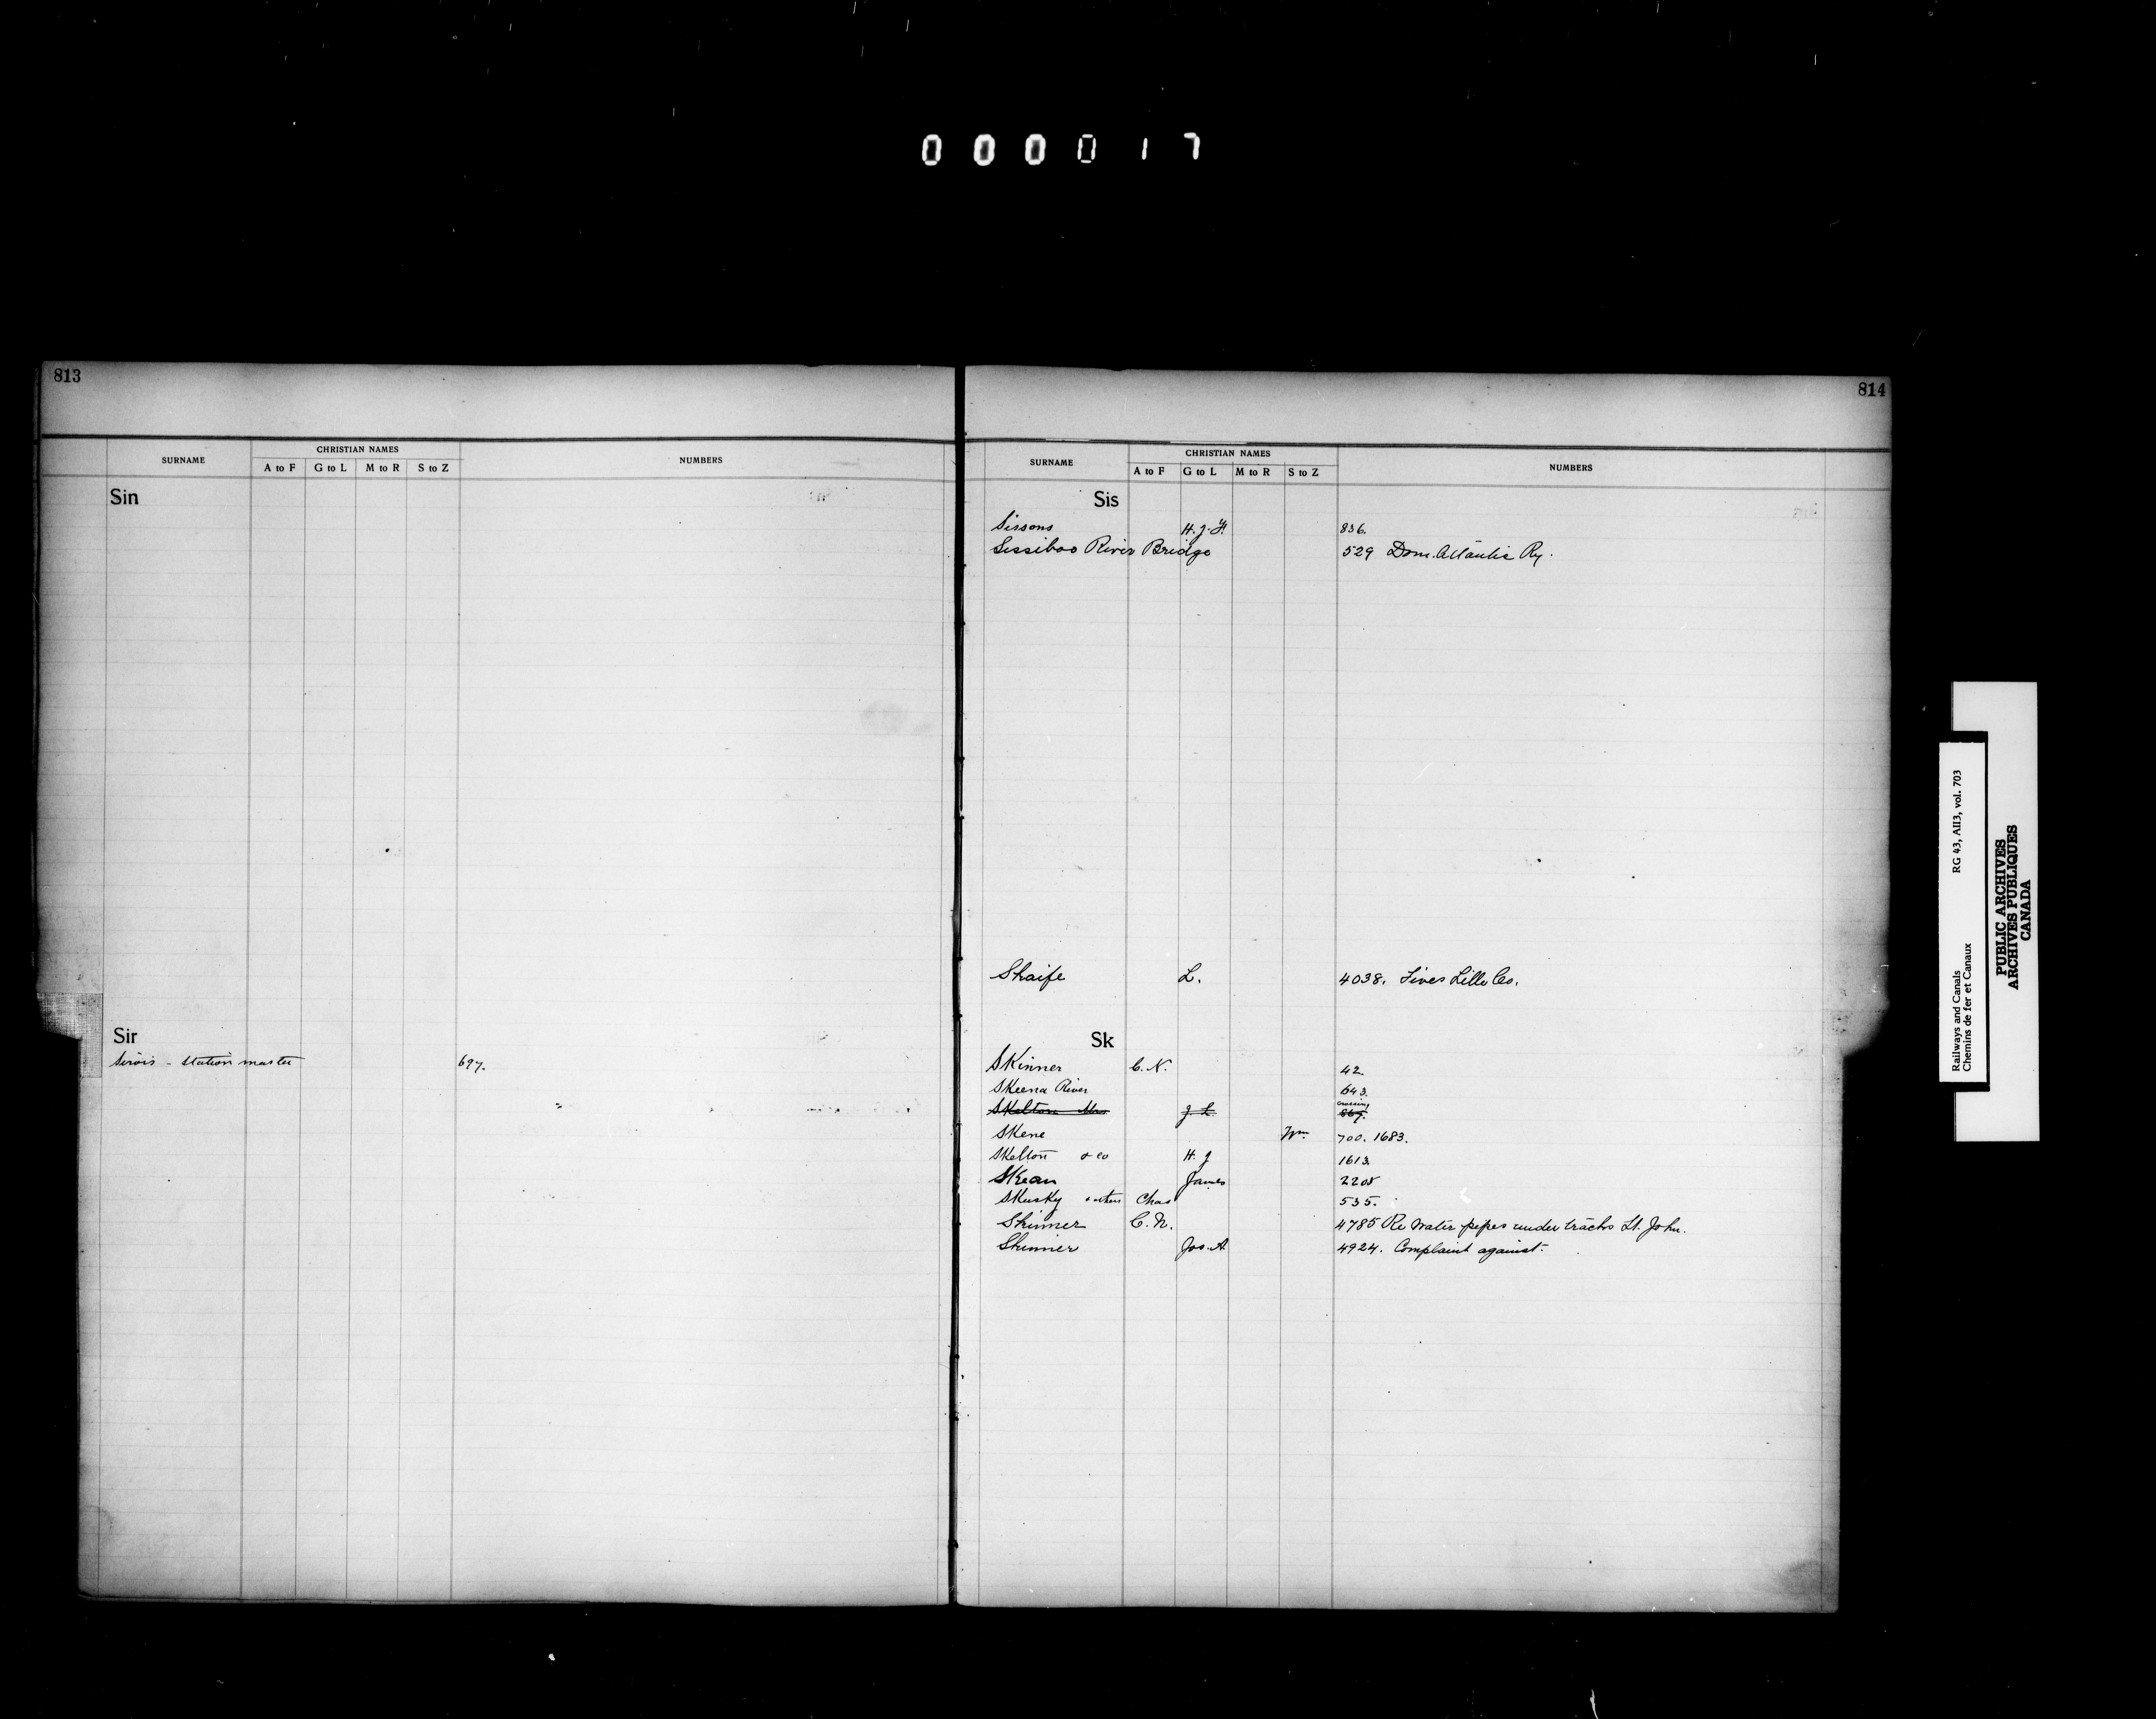 000017
813
SURNAME CHRISTIAN NAMES NUMBERS
A to F G to L M to R S to Z
Sin
Sir
Sirois - Station master 697.
814
SURNAME CHRISTIAN NAMES NUMBERS
A to F G to L M to R S to Z
Sis
Sissons H. J. 836.
Sissiboo River Bridge 529 Dom. Atlantic Ry.
Skaife L. 4038. Fives Lille Co.
Sk
Skinner C. N. 42.
Skeena River 643.
crossing
Skelton Mrs J. L. 867.
Skene Wm 700. 1683.
Skelton & co H. J 1613.
Skean James 2208
Skusky & others Chas 535.
Skinner C. N. 4785 Re water pipes under tracks St. John.
Skinner Jos. A. 4924. Complaint against.
Railways and Canals RG 43, AII3, vol. 703
Chemins de fer et Canaux
PUBLIC ARCHIVES
ARCHIVES PUBLIQUES
CANADA